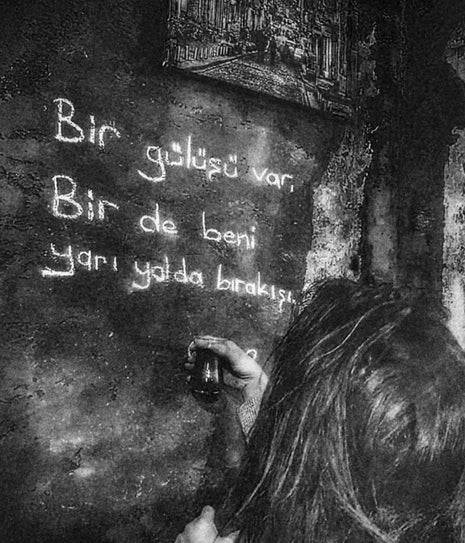 Bir gülüşü var,
Bir de beni
yarı yolda bırakışı.